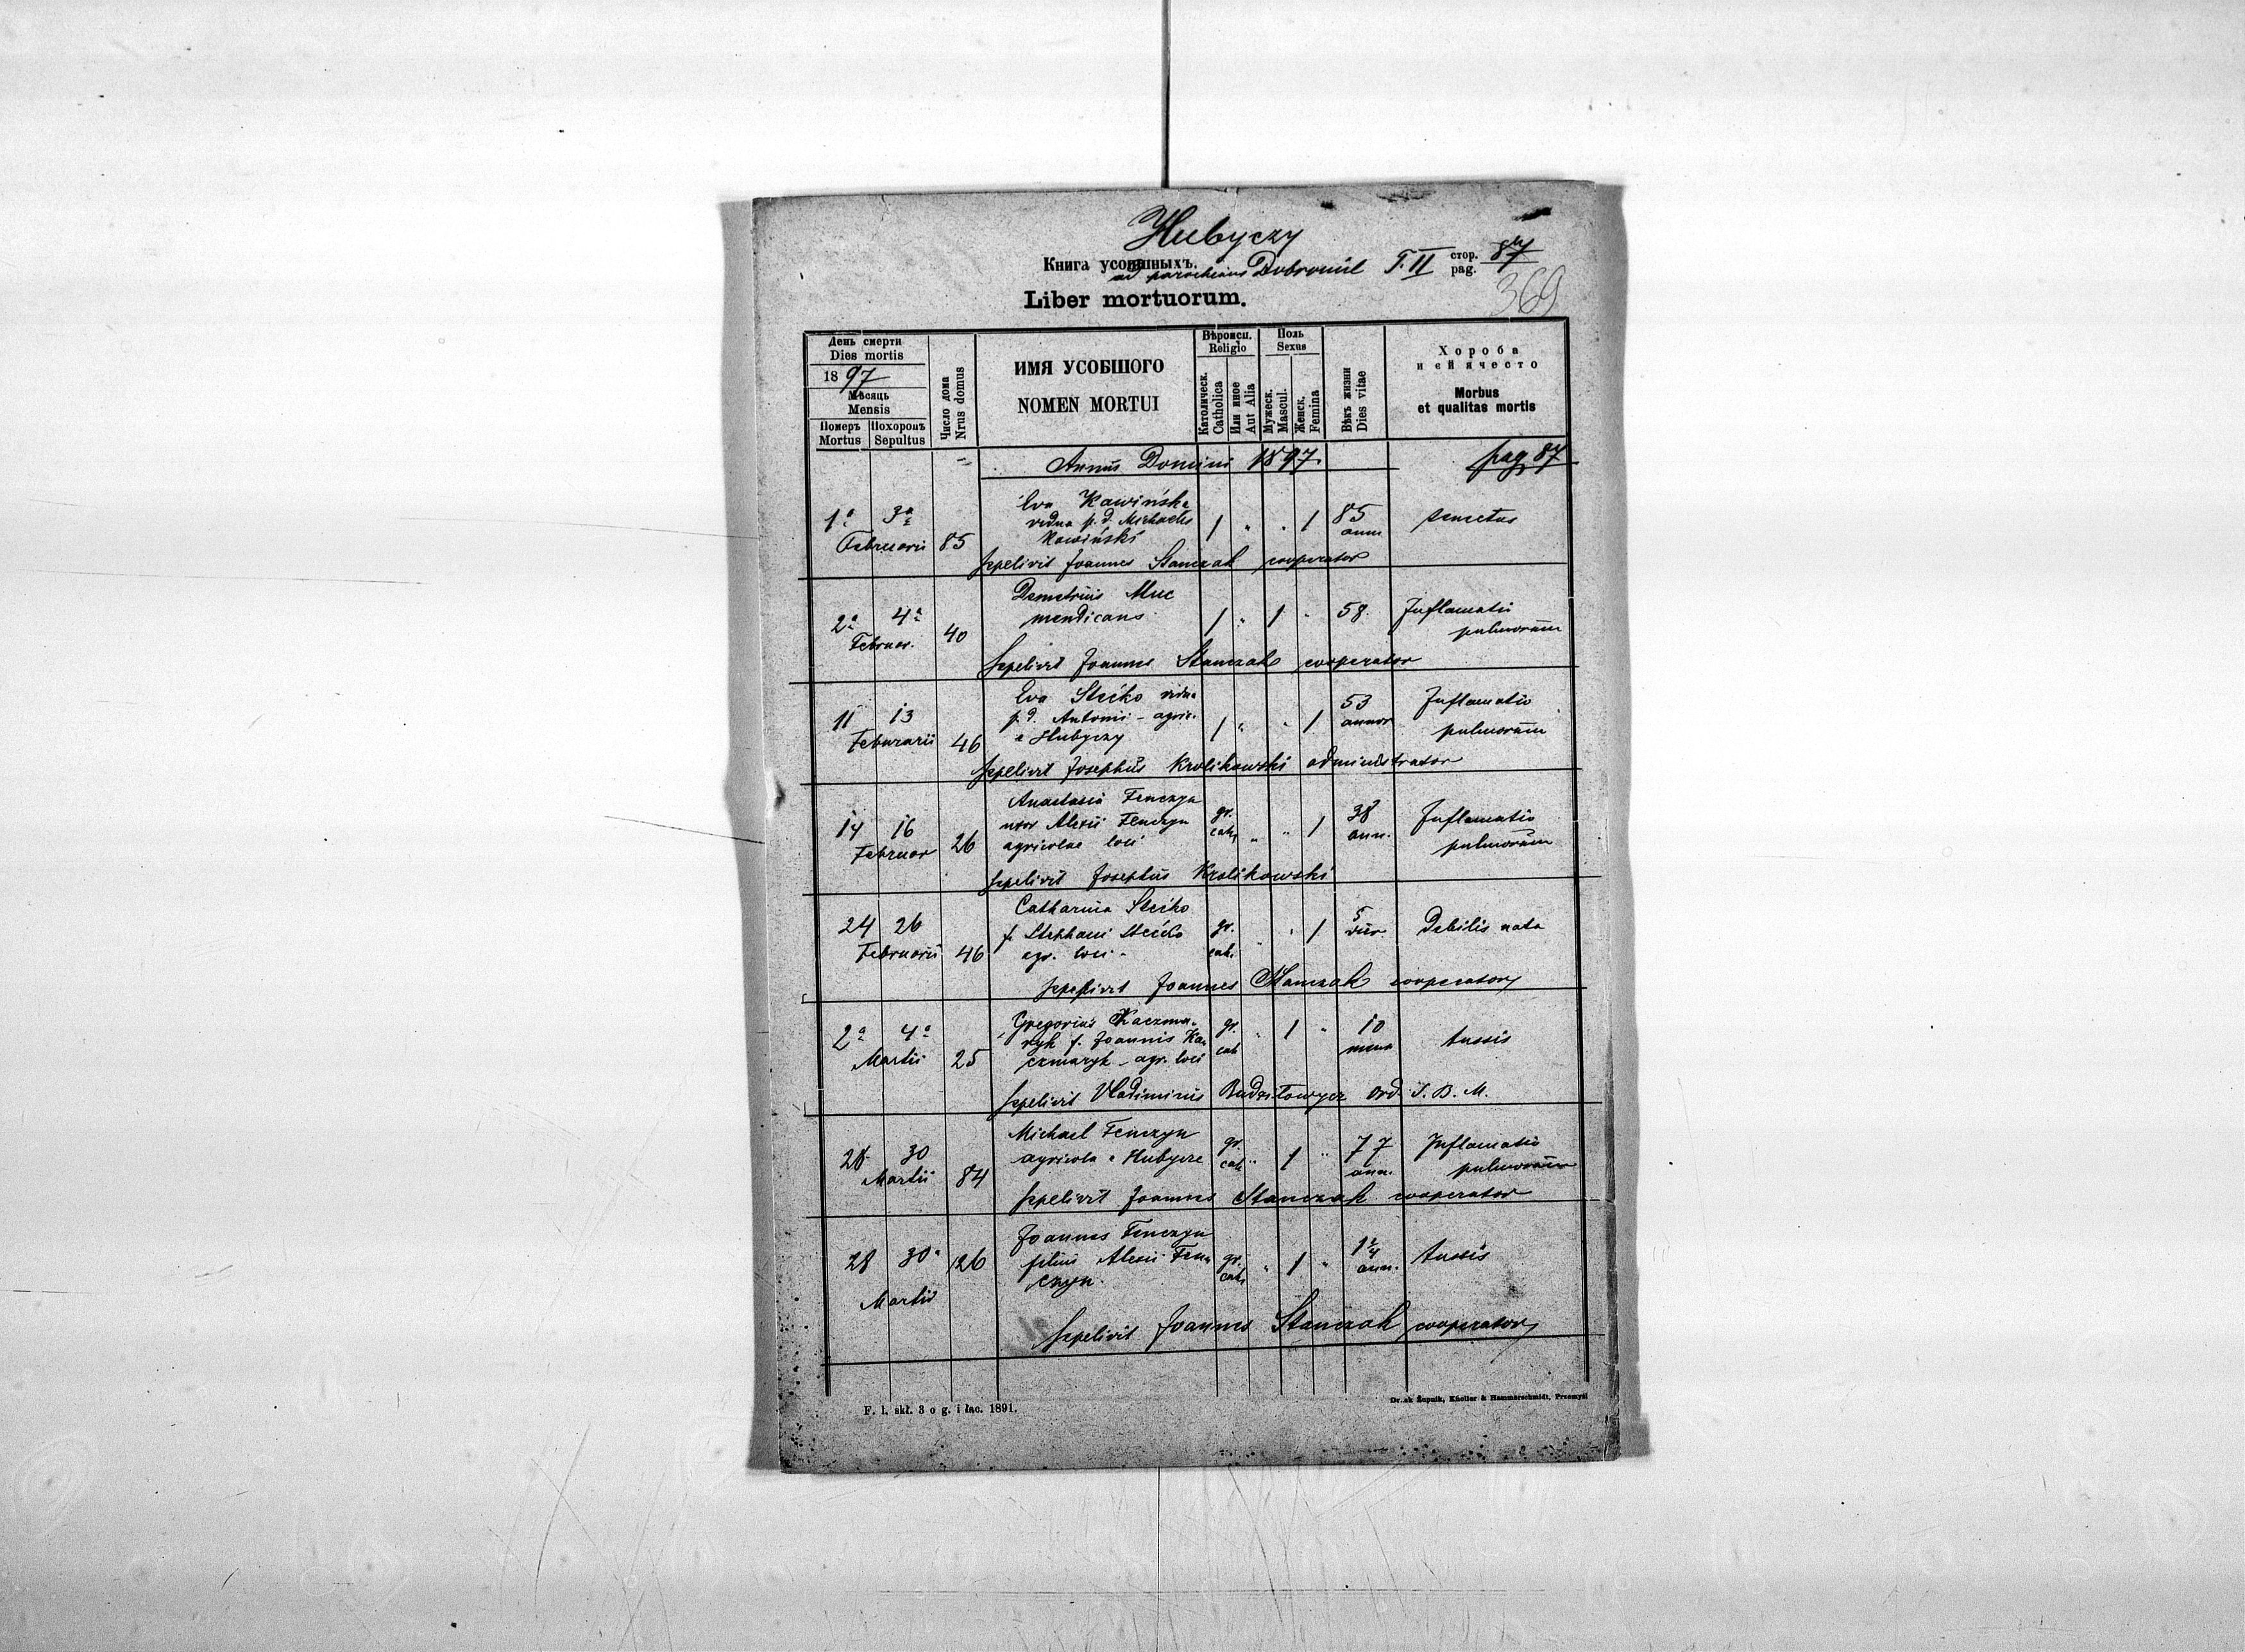 Hubyczy
Книга усопшныхъ.
ad parochiam Dobromil T. II стор. pag. 87
369
Liber mortuorum.
День смерти
Dies mortis
1897
Мѣсяць
Mensis
Померъ Похоронъ
Mortus Sepultus
Число дома
Nrus domus
ИМЯ УСОБШОГО
NOMEN MORTUI
Вѣроисп.
Religio
Католическ.
Catholica
Или иное
Aut Alia
Поль
Sexus
Мужеск.
Mascul.
Женск.
Femina
Вѣкъ жизни
Dies vitae
Хороба
и ей ячесто
Morbus
et qualitas mortis
Annus Domini 1897. pag 87
Eva Kawińska
1ª 3ª vidua p. d. Michaelis 1 " " 1 85 senectus
Februarii 85 Kawiński ann
sepelivit Joannes Stanczak cooperator
Demetrius Muc
2ª 4ª mendicans 1 " 1 " 58. Inflamatio
Februar. 40 pulmorum
sepelivit Joannes Stanczak cooperator
Eva Stećko vidua 53 Inflamatio
11 13 p. d. Antonii - agric. 1 " " 1 annor
Februarii 46 e Hubyczy pulmorum
sepelivit Josephus Krolikowski administrator
Anastasia Fenczyn gr. 38
14 16 uxor Alexii Fenczyn cath " " 1 ann. Inflamatio
Februar 26 agricolae loci pulmorum
sepelivit Josephus Krolikowski
Catharina Stećko 5
24 26 f. Stephani Stećko gr. " " 1 Debilis nata
Februarii 46 agr. loci - cath.
sepelivit Joannes Stanczak cooperator
Gregorius Kaczma-
2ª 4ª ryk f. Joannis Ka- gr. " 1 " 10 tussis
Martii 25 czmaryk - agr. loci cat mens
sepelivit Vladimirus Budzitowycz ord. S. B. M.
Michael Fenczyn gr. 77 Inflamatio
28 30 agricola e Hubycze cath " 1 " ann. pulmorum
Martii 84
sepelivit Joannes Stanczak cooperator
Joannes Fenczyn
28 30 126 filius Alexii Fen- gr. " 1 " ann. tussis
Martii czyn. cath
sepelivit Joannes Stanczak cooperator
F. l. skł. 3 o g. i łac. 1891.
Druk Żupnik, Knoller & Hammerschmidt, Przemyśl